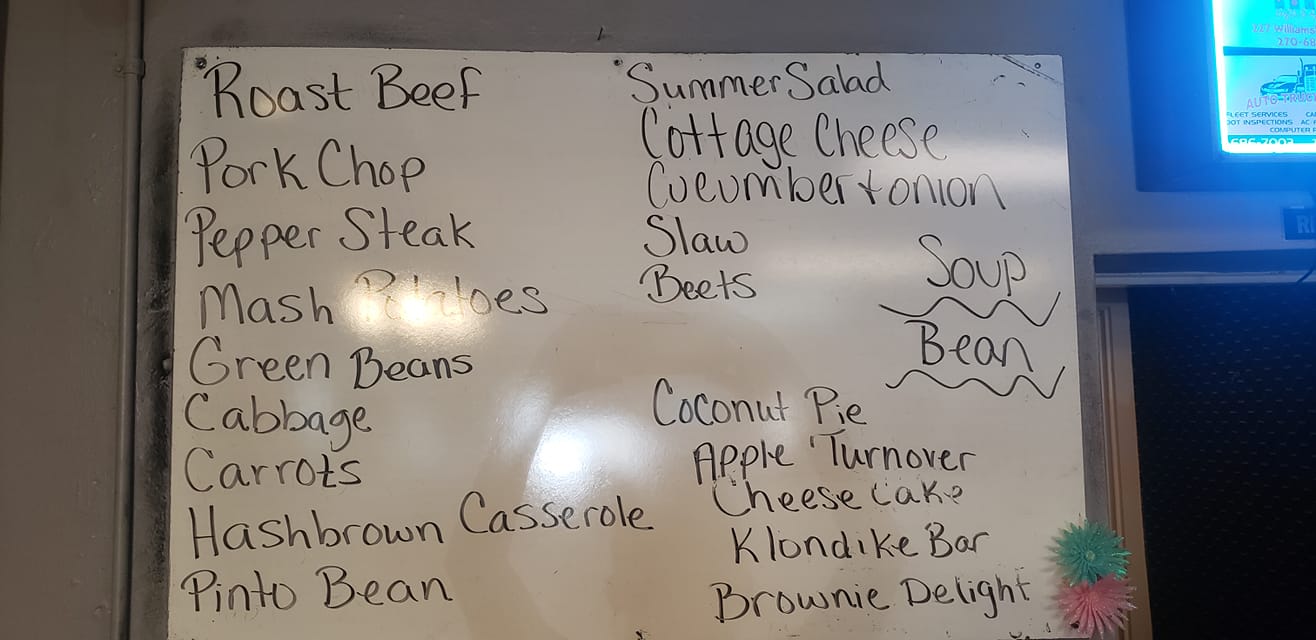 Roast Beef
Pork Chop
Pepper Steak
Mash Potatoes
Green Beans
Cabbage
Carrots
Hashbrown Casserole
Pinto Bean
Summer Salad
Cottage Cheese
Cucumber + onion
Slaw
Beets
Soup
Bean
Coconut Pie
Apple Turnover
Cheese Cake
Klondike Bar
Brownie Delight
227 Williams
270-68
AUTO TRUC
FLEET SERVICES
DOT INSPECTIONS AC
COMPUTER
686-7003